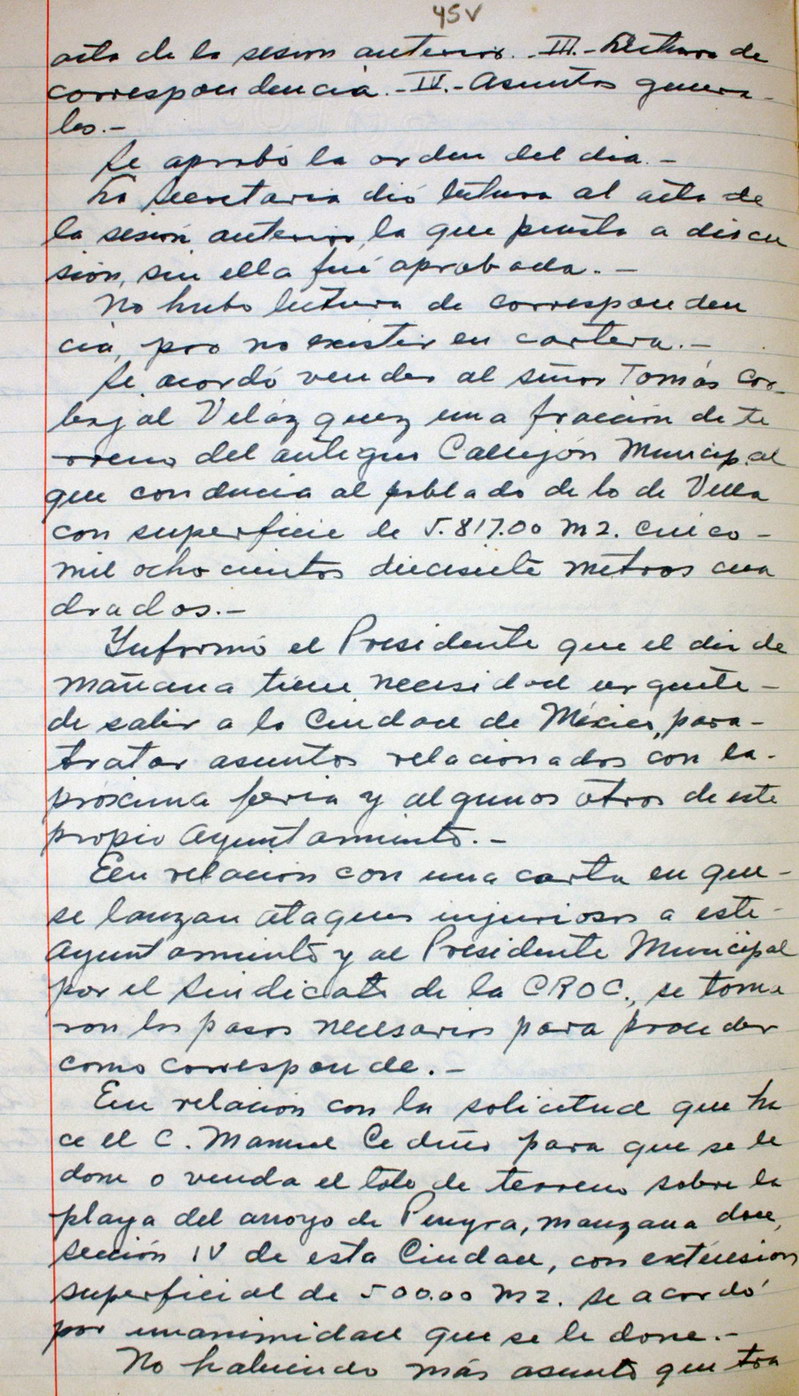 45V
acta de la sesion anterior.-III.-Lectura de
correspondencia.-IV.-Asuntos genera-
les.-
Se aprobó la orden del dia.-
La Secretaria dió lectura al acta de
la sesión anterior, la que puesta a discu
sión, sin ella fué aprobada.-
No hubo lectura de corresponden
cia, por no existir en cartera.-
Se acordó vender al señor Tomás Car-
bajal Velázquez una fracción de te
rreno del antiguo Callejón Municipal
que conducia al poblado de lo de Villa
con superficie de 5.817.00 m2. cinco-
mil ochocientos diecisiete metros cua
drados.-
Informó el Presidente que el dia de
mañana tiene necesidad urgente-
de salir a la Ciudad de México, para-
tratar asuntos relacionados con la-
próxima feria y algunos otros de este
propio Ayuntamiento.-
En relacion con una carta en que-
se lanzan ataques injuriosos a este-
Ayuntamiento y al Presidente Municipal
por el Sindicato de la CROC., se toma
ron los pasos necesarios para proceder
como corresponde.-
En relacion con la solicitud que ha
ce el C. Manuel Cedeño para que se le
done o venda el lote de terreno sobre la
playa del arroyo de Pereyra, manzana doce,
sección IV de esta Ciudad, con extension
superficial de 500.00 m2. se acordó
por unanimidad que se le done.-
No habiendo más asunto que tra